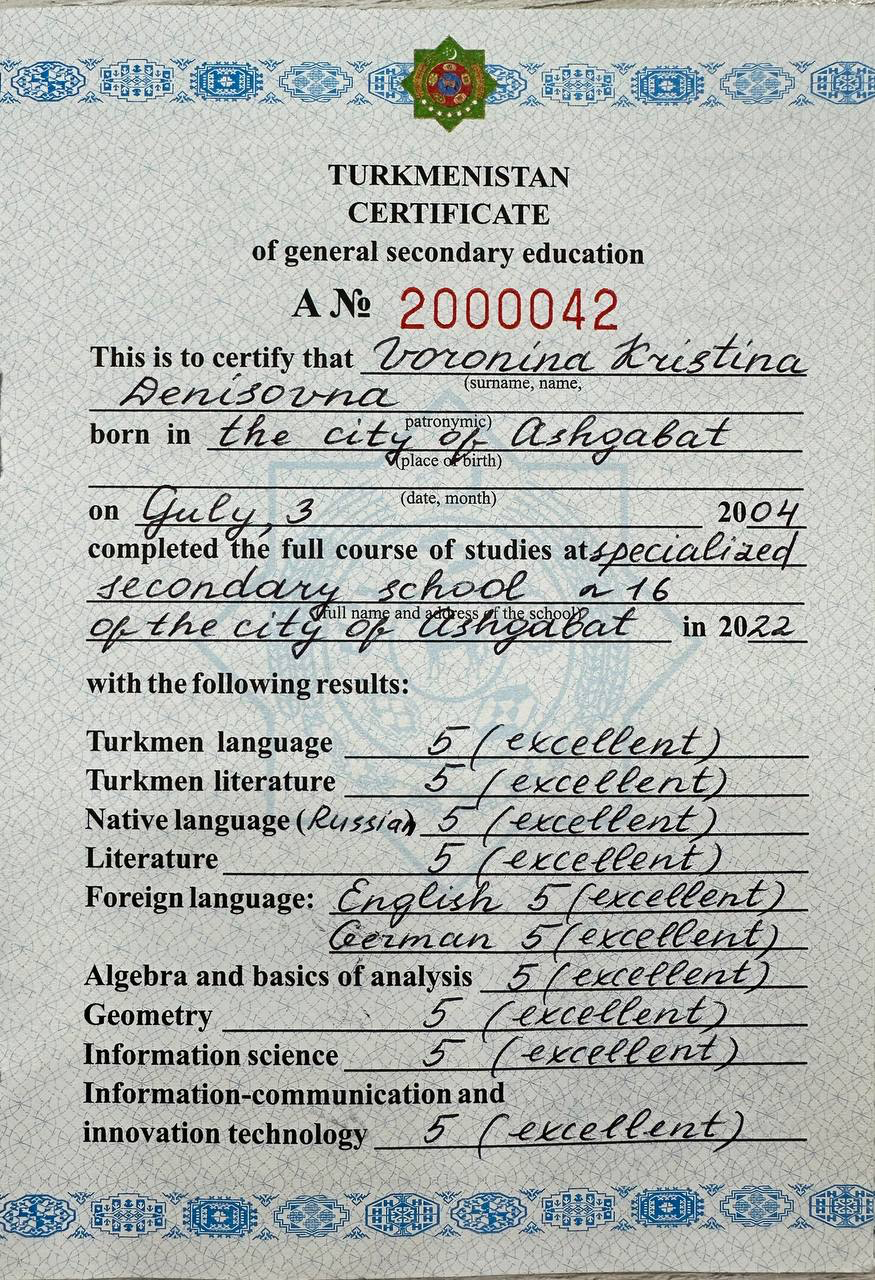 TURKMENISTAN
CERTIFICATE
of general secondary education
A № 2000042
This is to certify that Voronina Kristina
(surname, name,
Denisovna
patronymic)
born in the city of Ashgabat
(place of birth)
(date, month)
on July, 3 2004
completed the full course of studies at specialized
secondary school № 16
(full name and address of the school)
of the city of Ashgabat in 2022
with the following results:
Turkmen language 5 (excellent)
Turkmen literature 5 (excellent)
Native language (Russian) 5 (excellent)
Literature 5 (excellent)
Foreign language: English 5 (excellent)
German 5 (excellent)
Algebra and basics of analysis 5 (excellent)
Geometry 5 (excellent)
Information science 5 (excellent)
Information-communication and
innovation technology 5 (excellent)